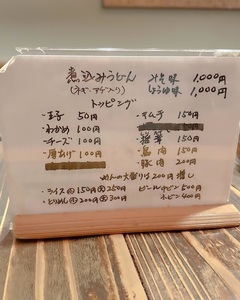 煮込みうどん
(ネギ・アゲ入り)
みそ味 1,000円
しょうゆ味 1,000円
トッピング
・玉子 50円
・わかめ 100円
・チーズ 100円
・厚あげ 100円
・キムチ 150円
・椎茸 150円
・鳥肉 150円
・豚肉 200円
めんの大盛りは200円増し
・ライス㊥150円㊤250円
・とりめし㊥200円㊤300円
ビール中ビン 500円
小ビン 400円